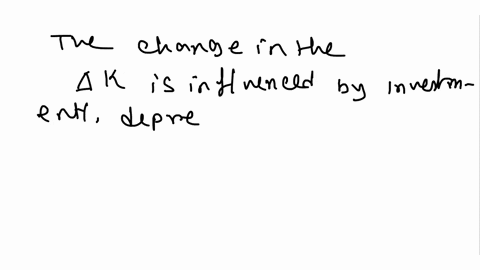 The change in the
Δ K is influenced by investm-
ent, depre